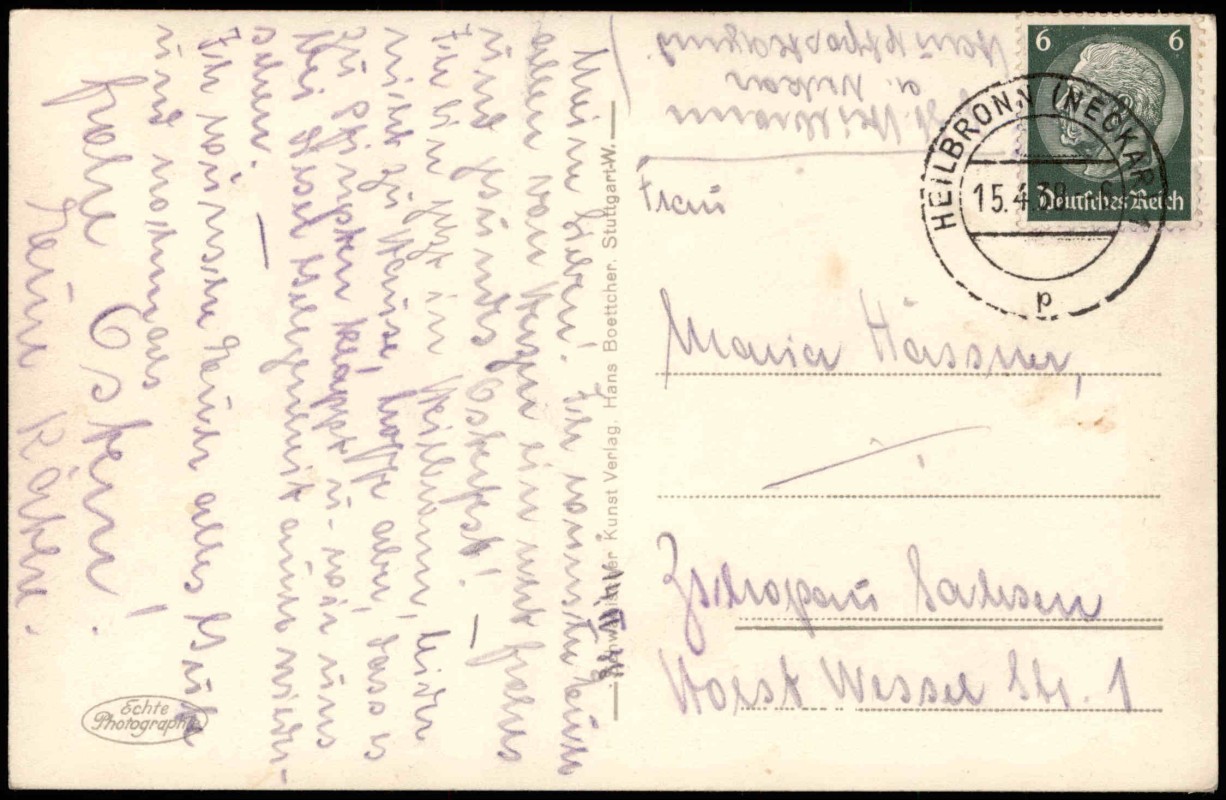 Meine Lieben! Ich wünsche Euch
allen von Herzen ein recht frohes
und gesundes Osterfest! —
Ich bin jetzt in Heilbronn, leider
nicht zu Hause, hoffe aber, dass s
zu Pfingsten klappt u. wir uns
bei dieser Gelegenheit auch wieder-
sehen. —
Ich wünsche Euch alles Gute
und nochmals
frohe Ostern!
Eure Käthe.
Echte
Photographie
Schwäbischer Kunst Verlag, Hans Boettcher, Stuttgart-W.
Heilbronn
a. Neckar
hauptpostlagernd
6 6
Deutsches Reich
HEILBRONN (NECKAR) 1
15.4.38
p
Frau
Maria Hässner,
Zschopau Sachsen
Horst Wessel Str. 1